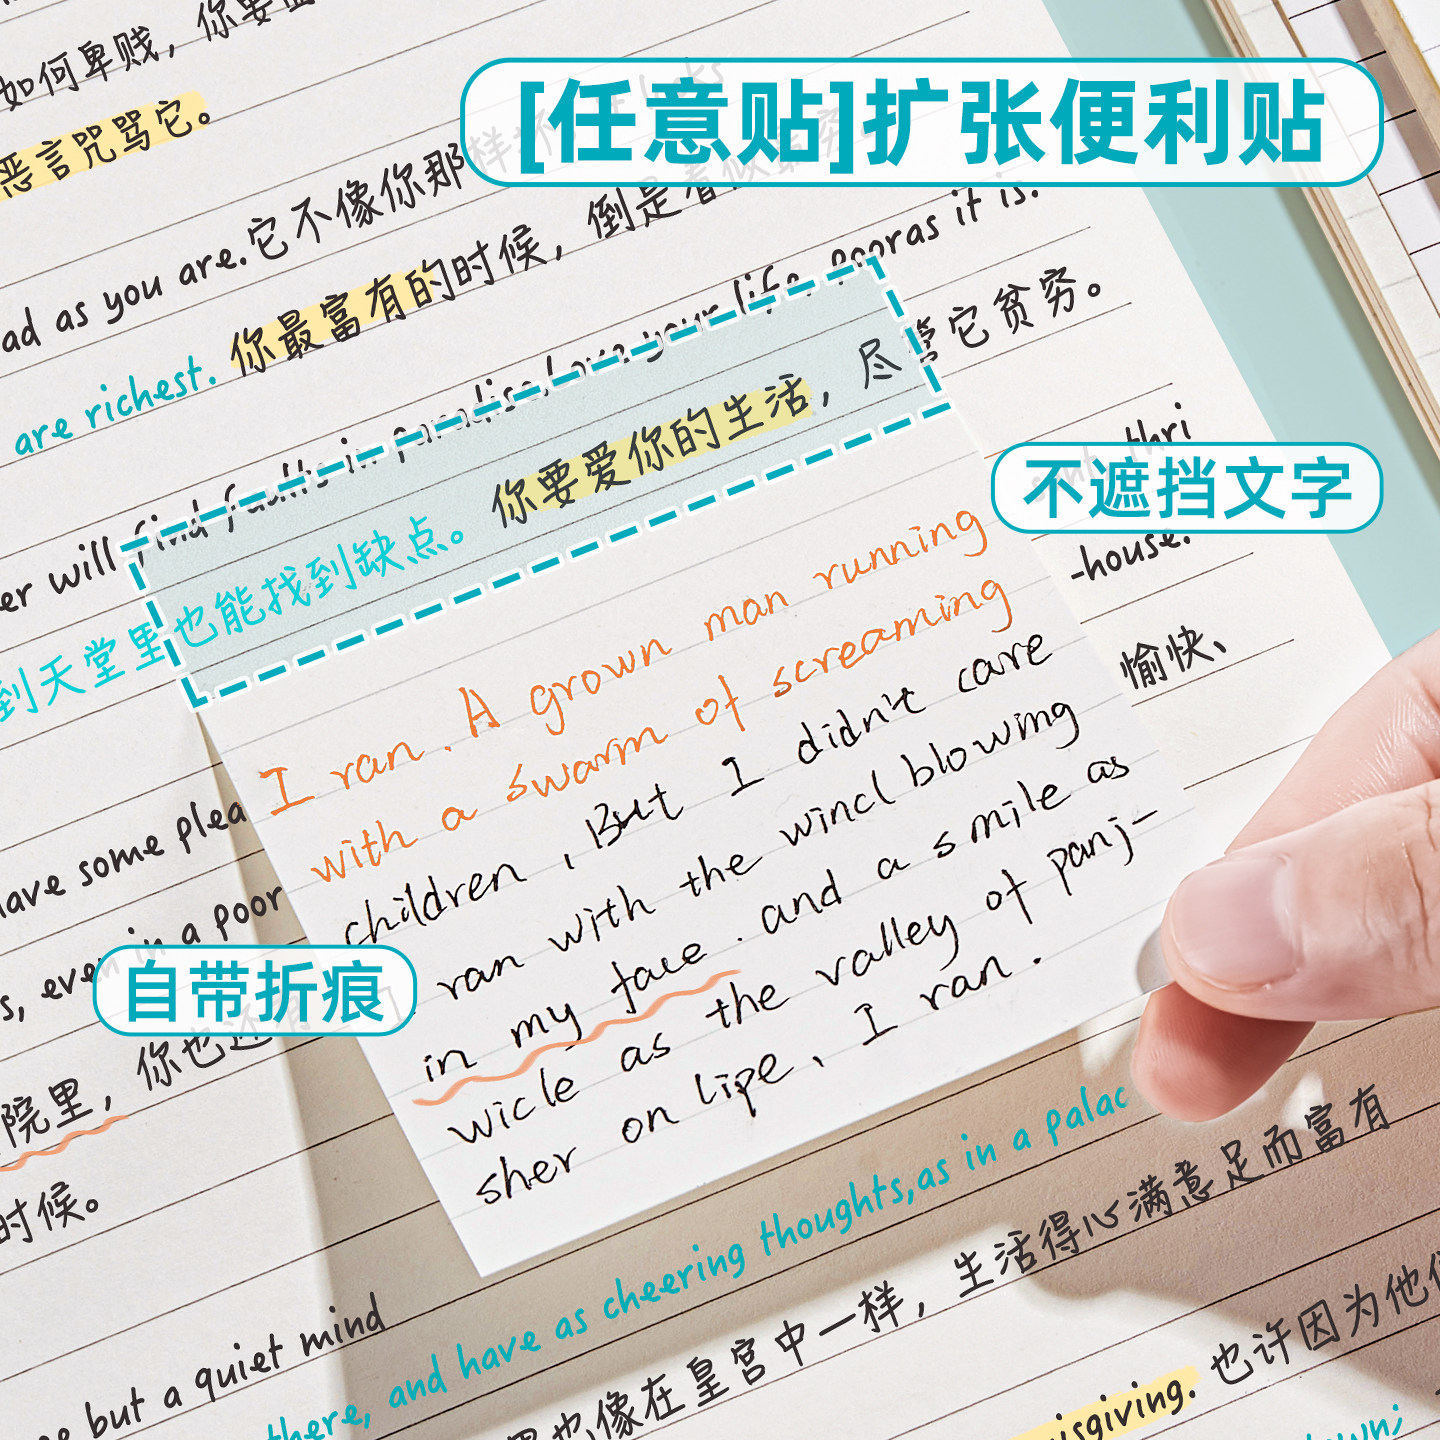 [任意贴]扩张便利贴
不遮挡文字
自带折痕
如何卑贱，你要面
恶言咒骂它。
ad as you are.它不像你那样坏
are richest. 你最富有的时候，倒是看似最穷
er will find faults in paradise.Love your life, poor as it is.
到天堂里也能找到缺点。你要爱你的生活，尽管它贫穷。
thri
-house.
愉快、
have some plea
s, even in a poor
院里，你也还有
时候。
I ran. A grown man running
with a swarm of screaming
children, But I didn't care
ran with the wincl blowing
in my face. and a smile as
wicle as the valley of panj-
sher on lipe、I ran.
e but a quiet mind
there, and have as cheering thoughts,as in a palac
也像在皇宫中一样，生活得心满意足而富有
isgiving. 也许因为他们
own;